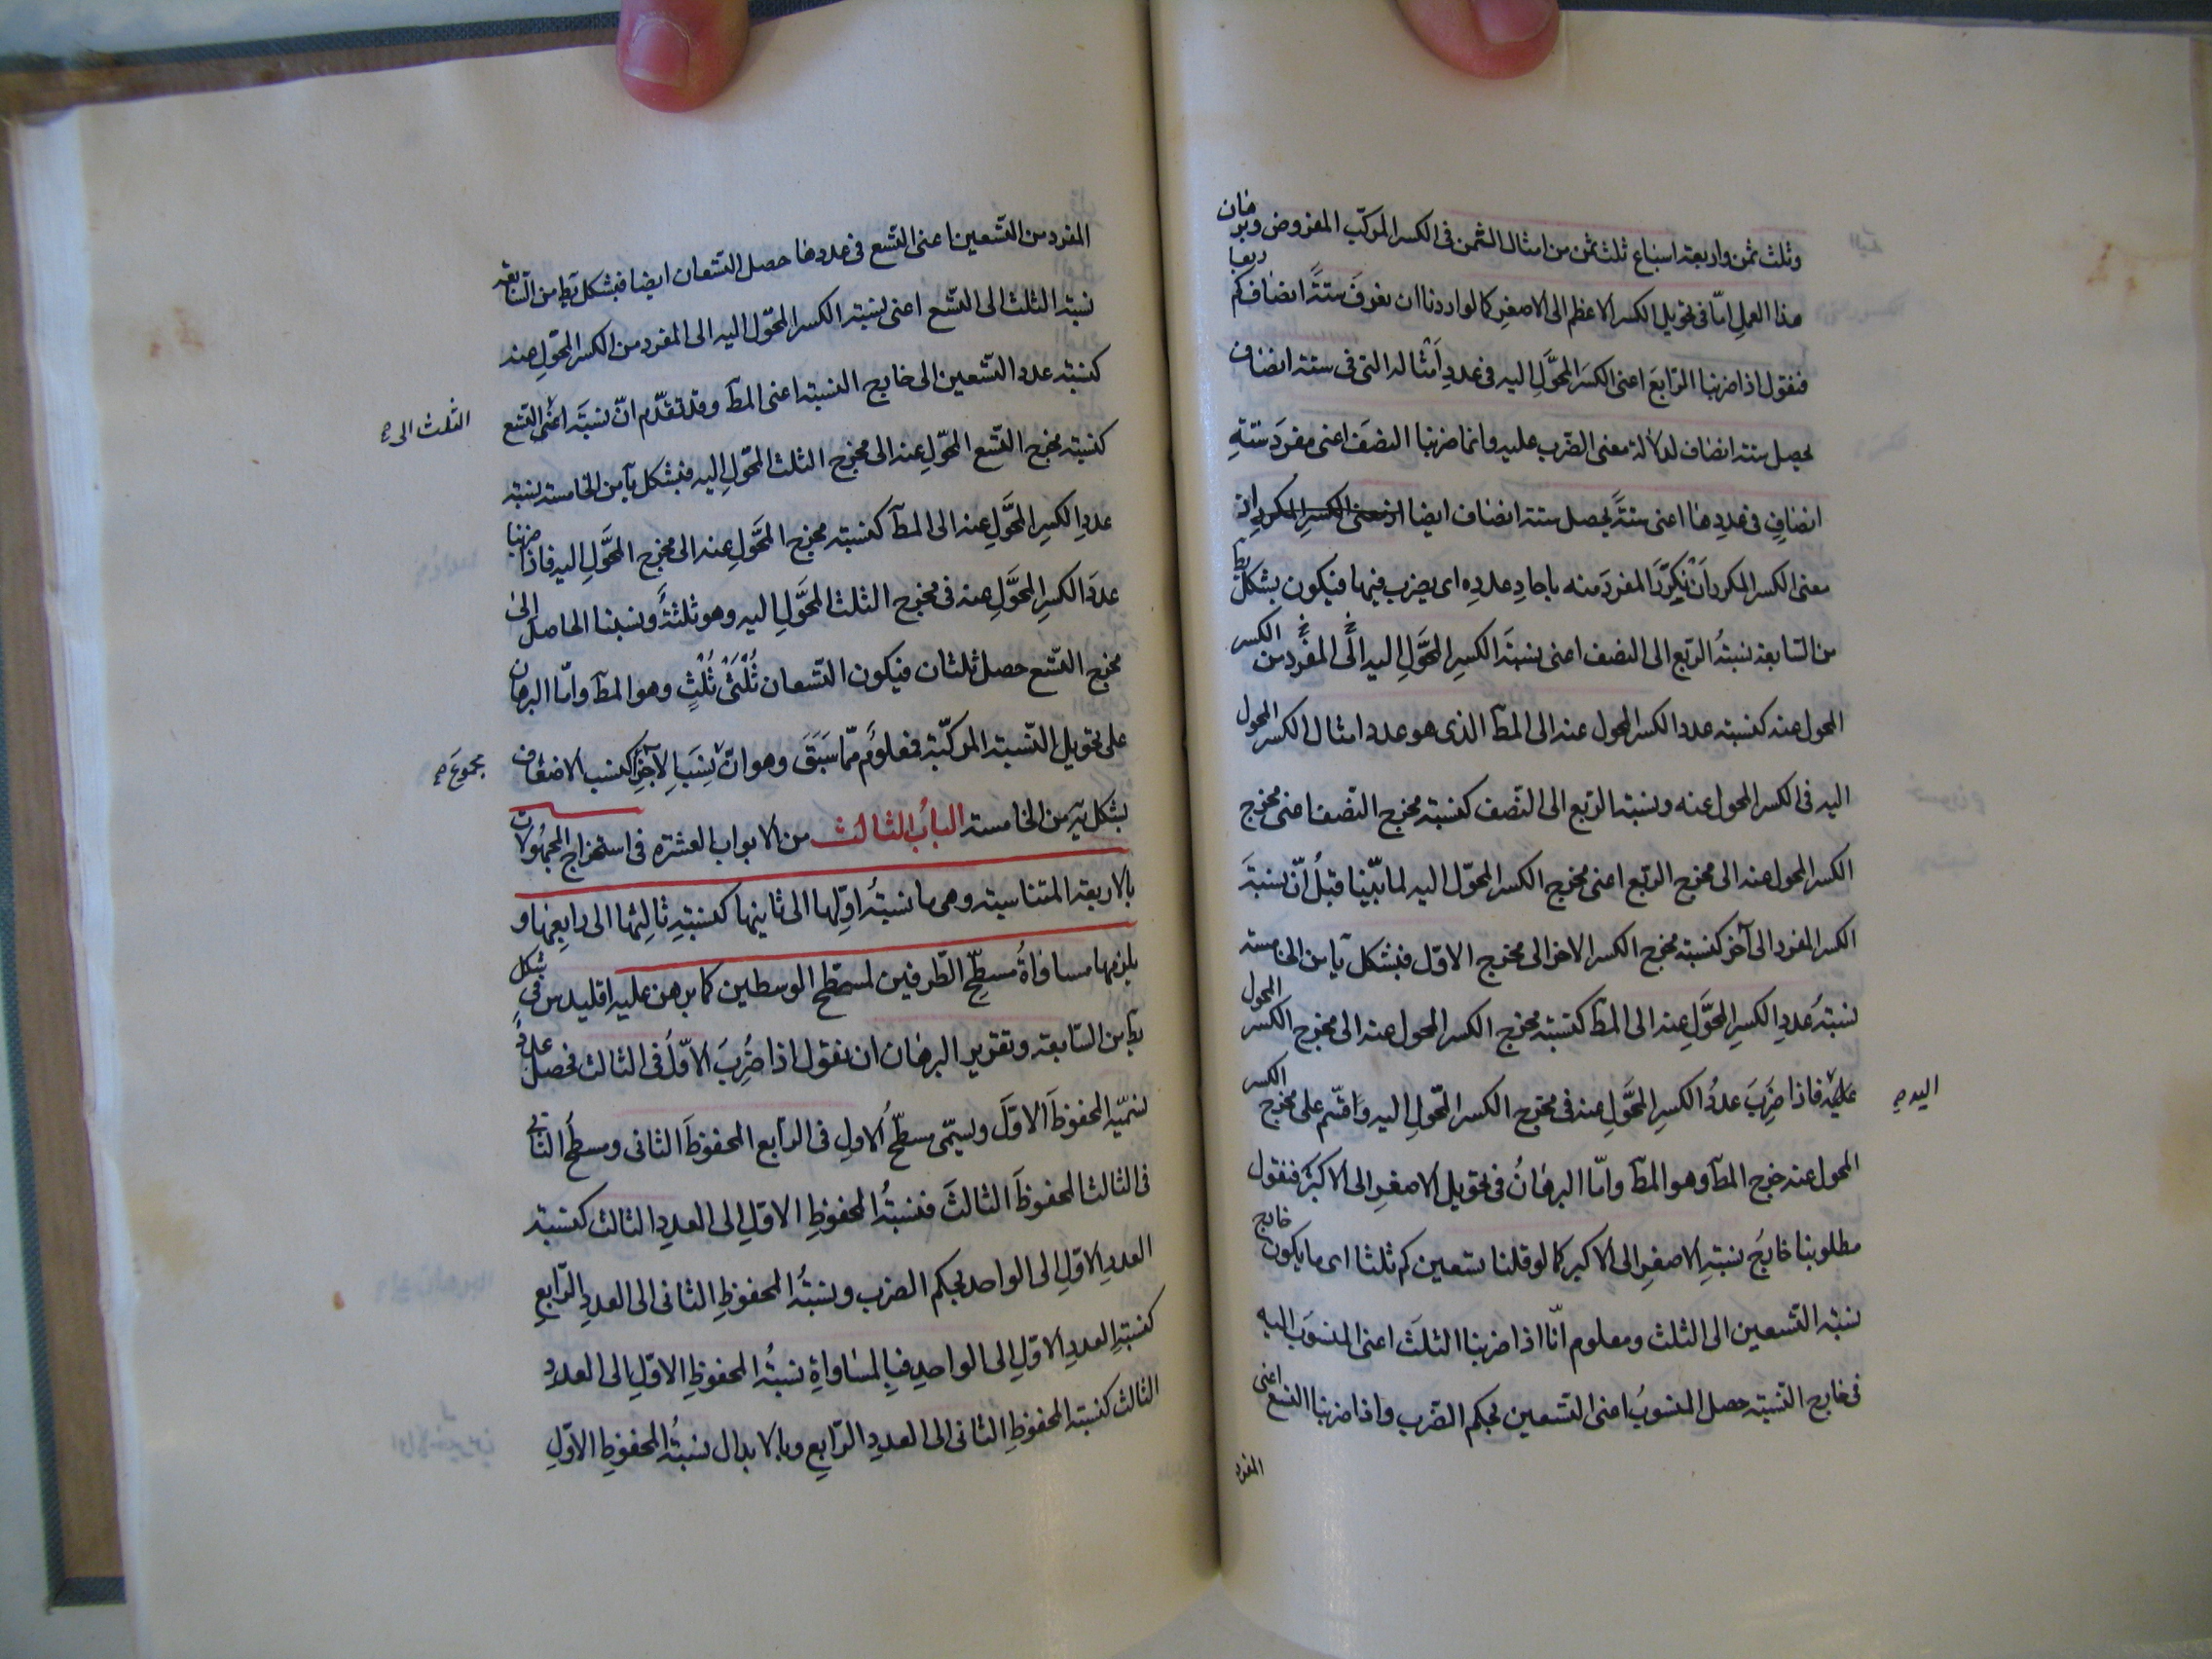 وثلث ثمن واربعة اسباع ثلث ثمن من امثال الثمن فى الكسر المركّب المفروض وبرهان
هذا العمل امّا فى تحويل الكسر الاعظم الى الاصغر كما لو اردنا ان نعرف ستّة انصاف كم ربعا
فنقول اذا ضربنا الرّابع اعنى الكسر المحوّل اليه فى عدد امثاله التى فى ستة انصاف
يحصل ستة انصاف لدلالة معنى الضّرب عليه وانما ضربنا النصف اعنى مفرد ستة
انصاف فى عددها اعنى ستّة يحصل ستة انصاف ايضا اذ معنى الكسر المكرر اذ
معنى الكسر المكرر أن يكرّر المفرد منه باحاد عدده اى يضرب فيها فيكون بشكل يط
من السّابعة نسبة الرّبع الى النصف اعنى نسبة الكسر المحوّل اليه الى المفرد من الكسر
المحول عنه كنسبة عدد الكسر المحول عنه الى المط الذى هو عدد امثال الكسر المحول
اليه فى الكسر المحول عنه ونسبة الربع الى النّصف كنسبة مخرج النّصف اعنى مخرج
الكسر المحول عنه الى مخرج الرّبع اعنى مخرج الكسر المحوّل اليه لما بيّنا قبل أنّ نسبة
الكسر المفرد الى آخر كنسبة مخرج الكسر الاخر الى مخرج الاوّل فبشكل يا من الخامسة
نسبة عدد الكسر المحوّل عنه الى المط كنسبة مخرج الكسر المحول عنه الى مخرج الكسر المحول
عليه فاذا ضرب عدد الكسر المحوّل عنه فى مخرج الكسر المحوّل اليه واقسم على مخرج الكسر
اليه صح
المحول عنه خرج المط وهو المط وامّا البرهان فى تحويل الاصغر الى الاكبر فنقول
مطلوبنا خارج نسبة الاصغر الى الاكبر كما لو قلنا تسعين كم ثلثا اى ما يكون خارج
نسبة التّسعين الى الثلث ومعلوم انّا اذا ضربنا الثلث اعنى المنسوب اليه
فى خارج النّسبة حصل المنسوب اعنى التّسعين بحكم الضّرب واذا ضربنا التسع اعنى
المفرد
المفرد من التّسعين اعنى التّسع فى عددها حصل التّسعان ايضا فبشكل يط من السّابعة
نسبة الثلث الى التّسع اعنى نسبة الكسر المحوّل اليه الى المفرد من الكسر المحوّل عنه
كنسبة عدد التّسعين الى خارج النسبة اعنى المط وقد تقدّم انّ نسبة اعنى التّسع
الثلث الى صح
كنسبة مخرج التّسع المحوّل عنه الى مخرج الثلث المحوّل اليه فبشكل يا من الخامسة نسبة
عدد الكسر المحوّل عنه الى المط كنسبة مخرج المحوّل عنه الى مخرج المحوّل اليه فاذا ضربنا
عدد الكسر المحوّل عنه فى مخرج الثلث المحوّل اليه وهو ثلثة ونسبنا الحاصل الى
مخرج التّسع حصل ثلثان فيكون التّسعان ثلثى ثلث وهو المط وامّا البرهان
على تحويل النّسبة المركّبة فمعلوم ممّا سبق وهو انّ نسب الاجزاء كنسب الاضعاف
مجموع صح
بشكل يه من الخامسة الباب الثالث من الابواب العشرة فى استخراج المجهولات
بالاربعة المتناسبة وهى ما نسبة اوّلها الى ثانيها كنسبة ثالثها الى رابعها و
يلزمها مساواة مسطّح الطّرفين لمسطّح الوسطين كما برهن عليه اقليدس فى شكل
يط من السّابعة وتقرير البرهان ان نقول اذا ضرب الاوّل فى الثالث فحصل عدد
نسمّيه المحفوظ الاوّل ويسمّى مسطّح الاول فى الرّابع المحفوظ الثانى ومسطح الثانى
فى الثالث المحفوظ الثالث فنسبة المحفوظ الاوّل الى العدد الثالث كنسبة
العدد الاوّل الى الواحد بحكم الضرب ونسبة المحفوظ الثانى الى العدد الرّابع
كنسبة العدد الاوّل الى الواحد فبالمساواة نسبة المحفوظ الاوّل الى العدد
الثالث كنسبة المحفوظ الثانى الى العدد الرّابع وبالابدال نسبة المحفوظ الاوّل